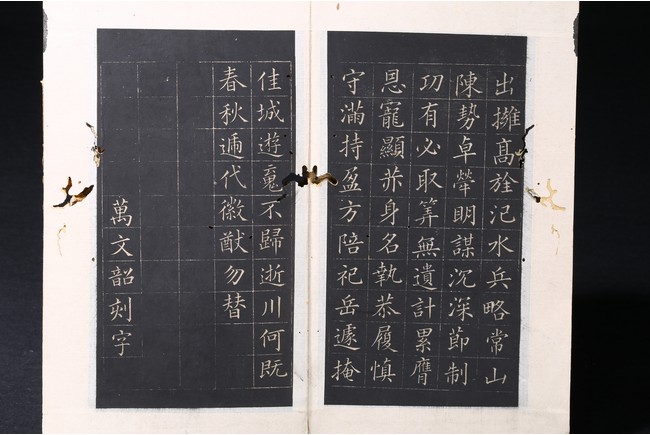 出擁高旌汜水兵略常山
陳勢卓犖明謀沉深節制
功有必取筭無遺計累膺
恩寵顯身名執恭履慎
守滿持盈方陪祀岳遽掩
佳城遊魂不歸逝川何既
春秋遞代徽猷勿替
萬文韶刻字